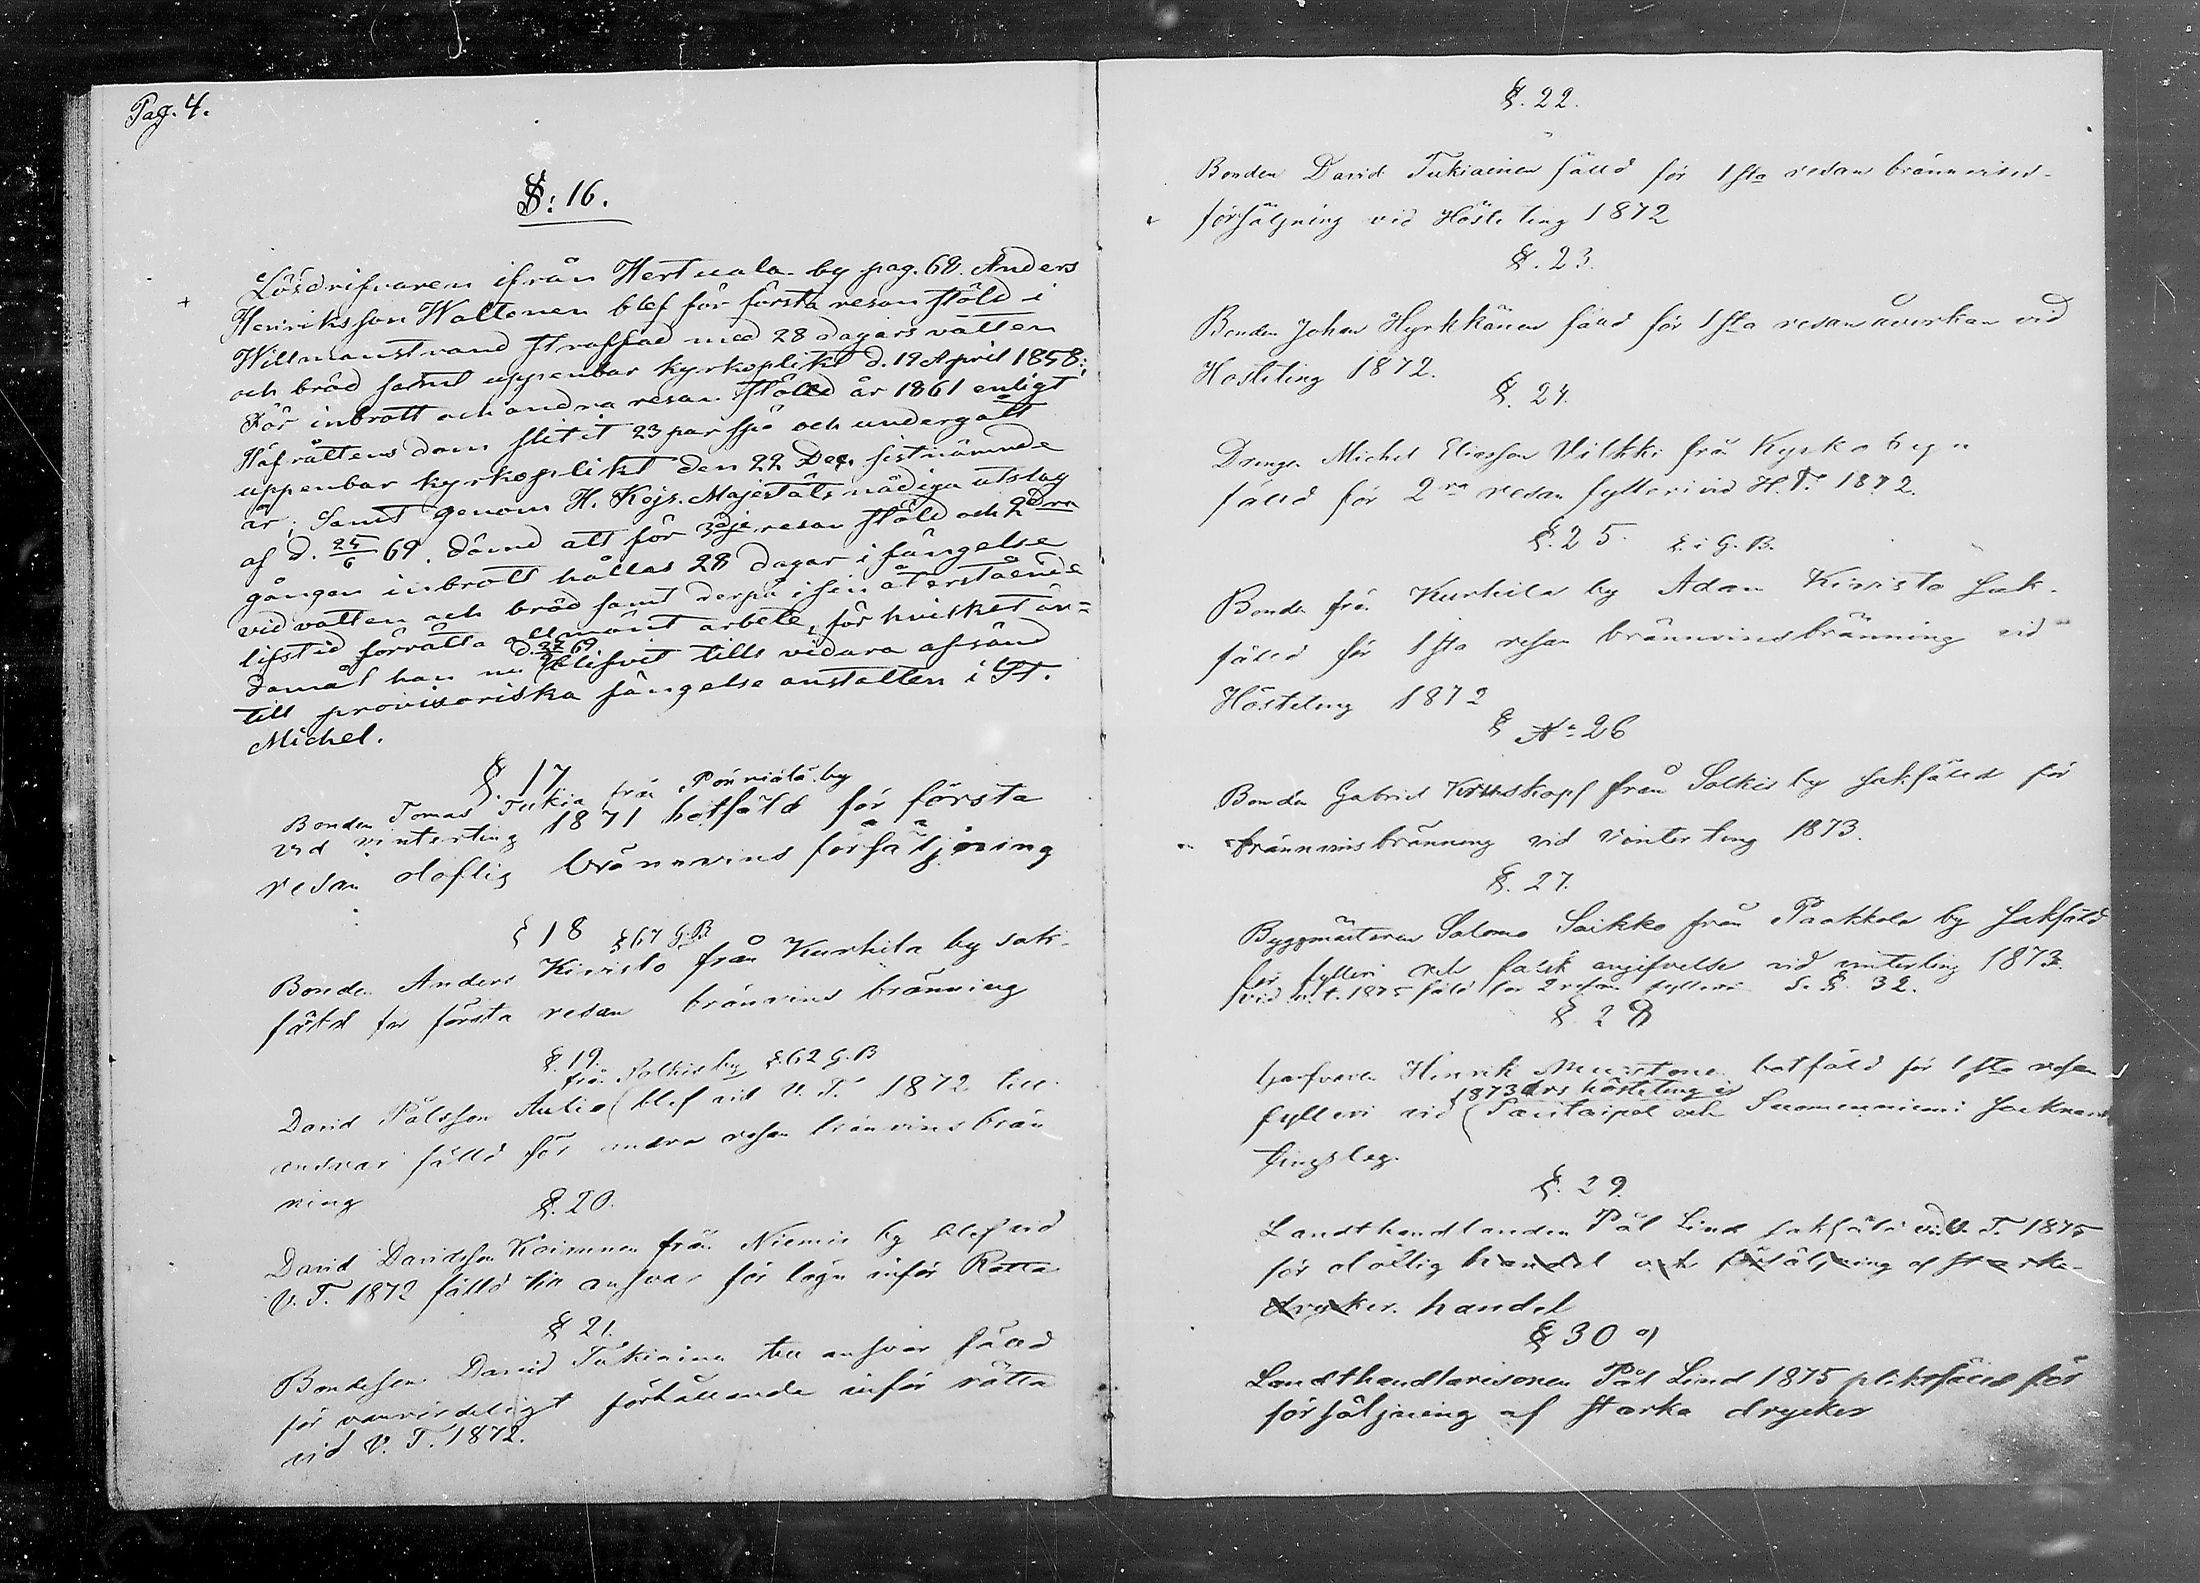 Pag. 4.
§: 16.
Lösdrifvaren ifrån Hertuala by pag. 68. Anders
Henriksson Waltonen blef för första resan stöld i
Willmanstrand straffad med 28 dagars vatten
och bröd samt uppenbar kyrkoplikt d. 19 April 1858:,
För inbrott och andra resan stöld år 1861 enligt
Hofrättens dom slitit 23 par spö och undergått
uppenbar kyrkoplikt den 22 Dec, sistnämnde
år; Samt genom H. Kejs. Majestäts nådiga utslag
af d. 25/6 69. dömd att för 3dje resan stöld och 2dra
gången inbrott hållas 28 dagar i fängelse
vid vatten och bröd samt derpå i sin återstående
lifstid förrätta allmänt arbete, för hvilket än=
damål han nu d. 69 blifvit tills vidara afsänd
till provisoriska fängelse anstalten i St.
Michel.
§. 17
från by
Bonden Tomas Tukia
vid vinterting 1871 botfäld för första
resan oloflig brännvins försäljning
§ 18 § 67 G.B.
Bonden Anders Kivisto från Kurhila by sak-
fäld för första resan brännvins bränning
§. 19.
från Solkis by §. 62 G. B
David Pålsson Autio blef vid V. T. 1872 till
andvar fälld för andra resan brännvins brän
ning
§. 20.
David Davidsson från Niemis by blef vid
V. T. 1872 fälld till ansvar för lögn inför Rätta
§ 21.
Bondeson David Tukiainen till ansvar fälld
för vanvördeligt förhållande inför rätta
vid V. T. 1872.
§. 22.
Bonden David Tukiainen fälld för 1sta resan brännvins-
försäljning vid Hösteting 1872
§. 23.
Bonden Johan Hyrkkänen fälld för 1sta resan åverkan vid
Hösteting 1872.
§. 24.
Drengen Michel Eliasson Vilkki från Kyrkobyn
fälld för 2ra resan fylleri vid H.T. 1872.
§. 25. §. i G. B.
Bonden från Kurhila by Adam Kivisto sak-
fälld för 1sta resan brännvinsbränning vid
Hösteting 1872
§ No 26
Bonden Gabriel Kruskopf från Solkis by sakfälld för
brännvinsbränning vid Vinterting 1873.
§. 27.
Byggmästaren Salomo Saikko från Paakkola by sakfäld
för fylleri och falsk angifvelse vid vinterting 1873.
vid v.t. 1875 fäld för 2 resan fylleri S. §. 32.
§. 28
Garfvaren Hinrik Mustonen botfäld för 1sta resan
1873 års hösteting i
fylleri vid Savitaipal och Suomenniemi socknars
tingslag.
§. 29.
Landthandlanden Pål Lind sakfäld vid V. T. 1875
för olåflig handel och försäljning af starka
drycker. handel
§ 30 a)
Landthandlaresonen Pål Lind 1875 pliktfälld för
försäljning af starka drycker